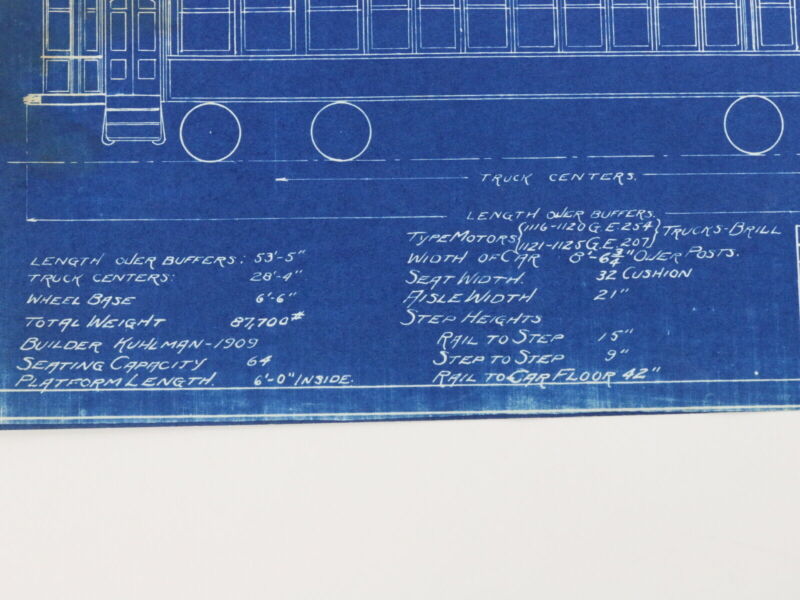 TRUCK CENTERS.
LENGTH OVER BUFFERS.
LENGTH OVER BUFFERS: 53'-5"
TRUCK CENTERS: 28'-4"
WHEEL BASE 6'-6"
TOTAL WEIGHT 87,700#
BUILDER KUHLMAN-1909
SEATING CAPACITY 64
PLATFORM LENGTH. 6'-0" INSIDE.
TYPE MOTORS {1116-1120 G.E. 254} TRUCKS-BRILL
{1121-1125 G.E. 207}
WIDTH OF CAR 8'-6 3/4" OVER POSTS.
SEAT WIDTH. 32 CUSHION
AISLE WIDTH 21"
STEP HEIGHTS
RAIL TO STEP 15"
STEP TO STEP 9"
RAIL TO CAR FLOOR 42"